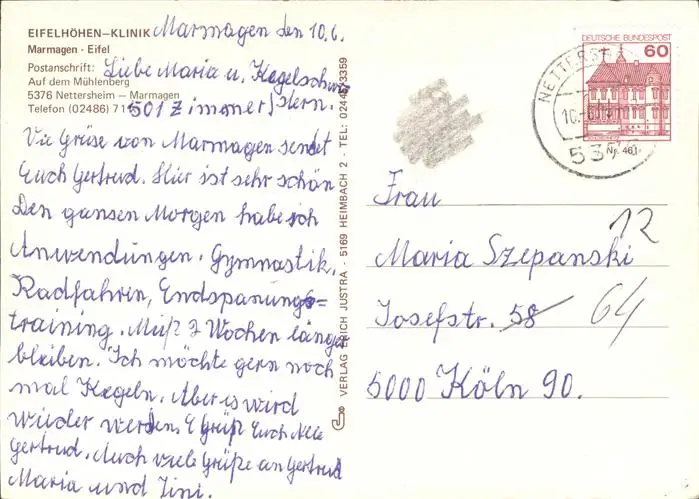 EIFELHÖHEN-KLINIK Marmagen den 10.6.
Marmagen · Eifel
Postanschrift: Liebe Maria u. Kegelschwestern.
Auf dem Mühlenberg
5376 Nettersheim - Marmagen
Telefon (02486) 71 501 Zimmer
Vie Grüse von Marmagen sendet
Euch Gertrud. Hier ist sehr schön
Den gansen Morgen habe ich
Anwendungen. Gymnastik,
Radfahren, Endspanungs=
training. Muß 3 Wochen länger
bleiben. Ich möchte gern noch
mal Kegeln. Aber is wird
wieder werden. Grüß Euch
Gertrud. Auch viele Grüße an Gertrud
Maria und Tini.
VERLAG ERICH JUSTRA · 5169 HEIMBACH 2 · TEL: 02446/3359
DEUTSCHE BUNDESPOST
60
NETTERSH
10.-6.
5376
Nr. 461
Frau
Maria Szepanski
12
Josefstr. 58 64
5000 Köln 90.